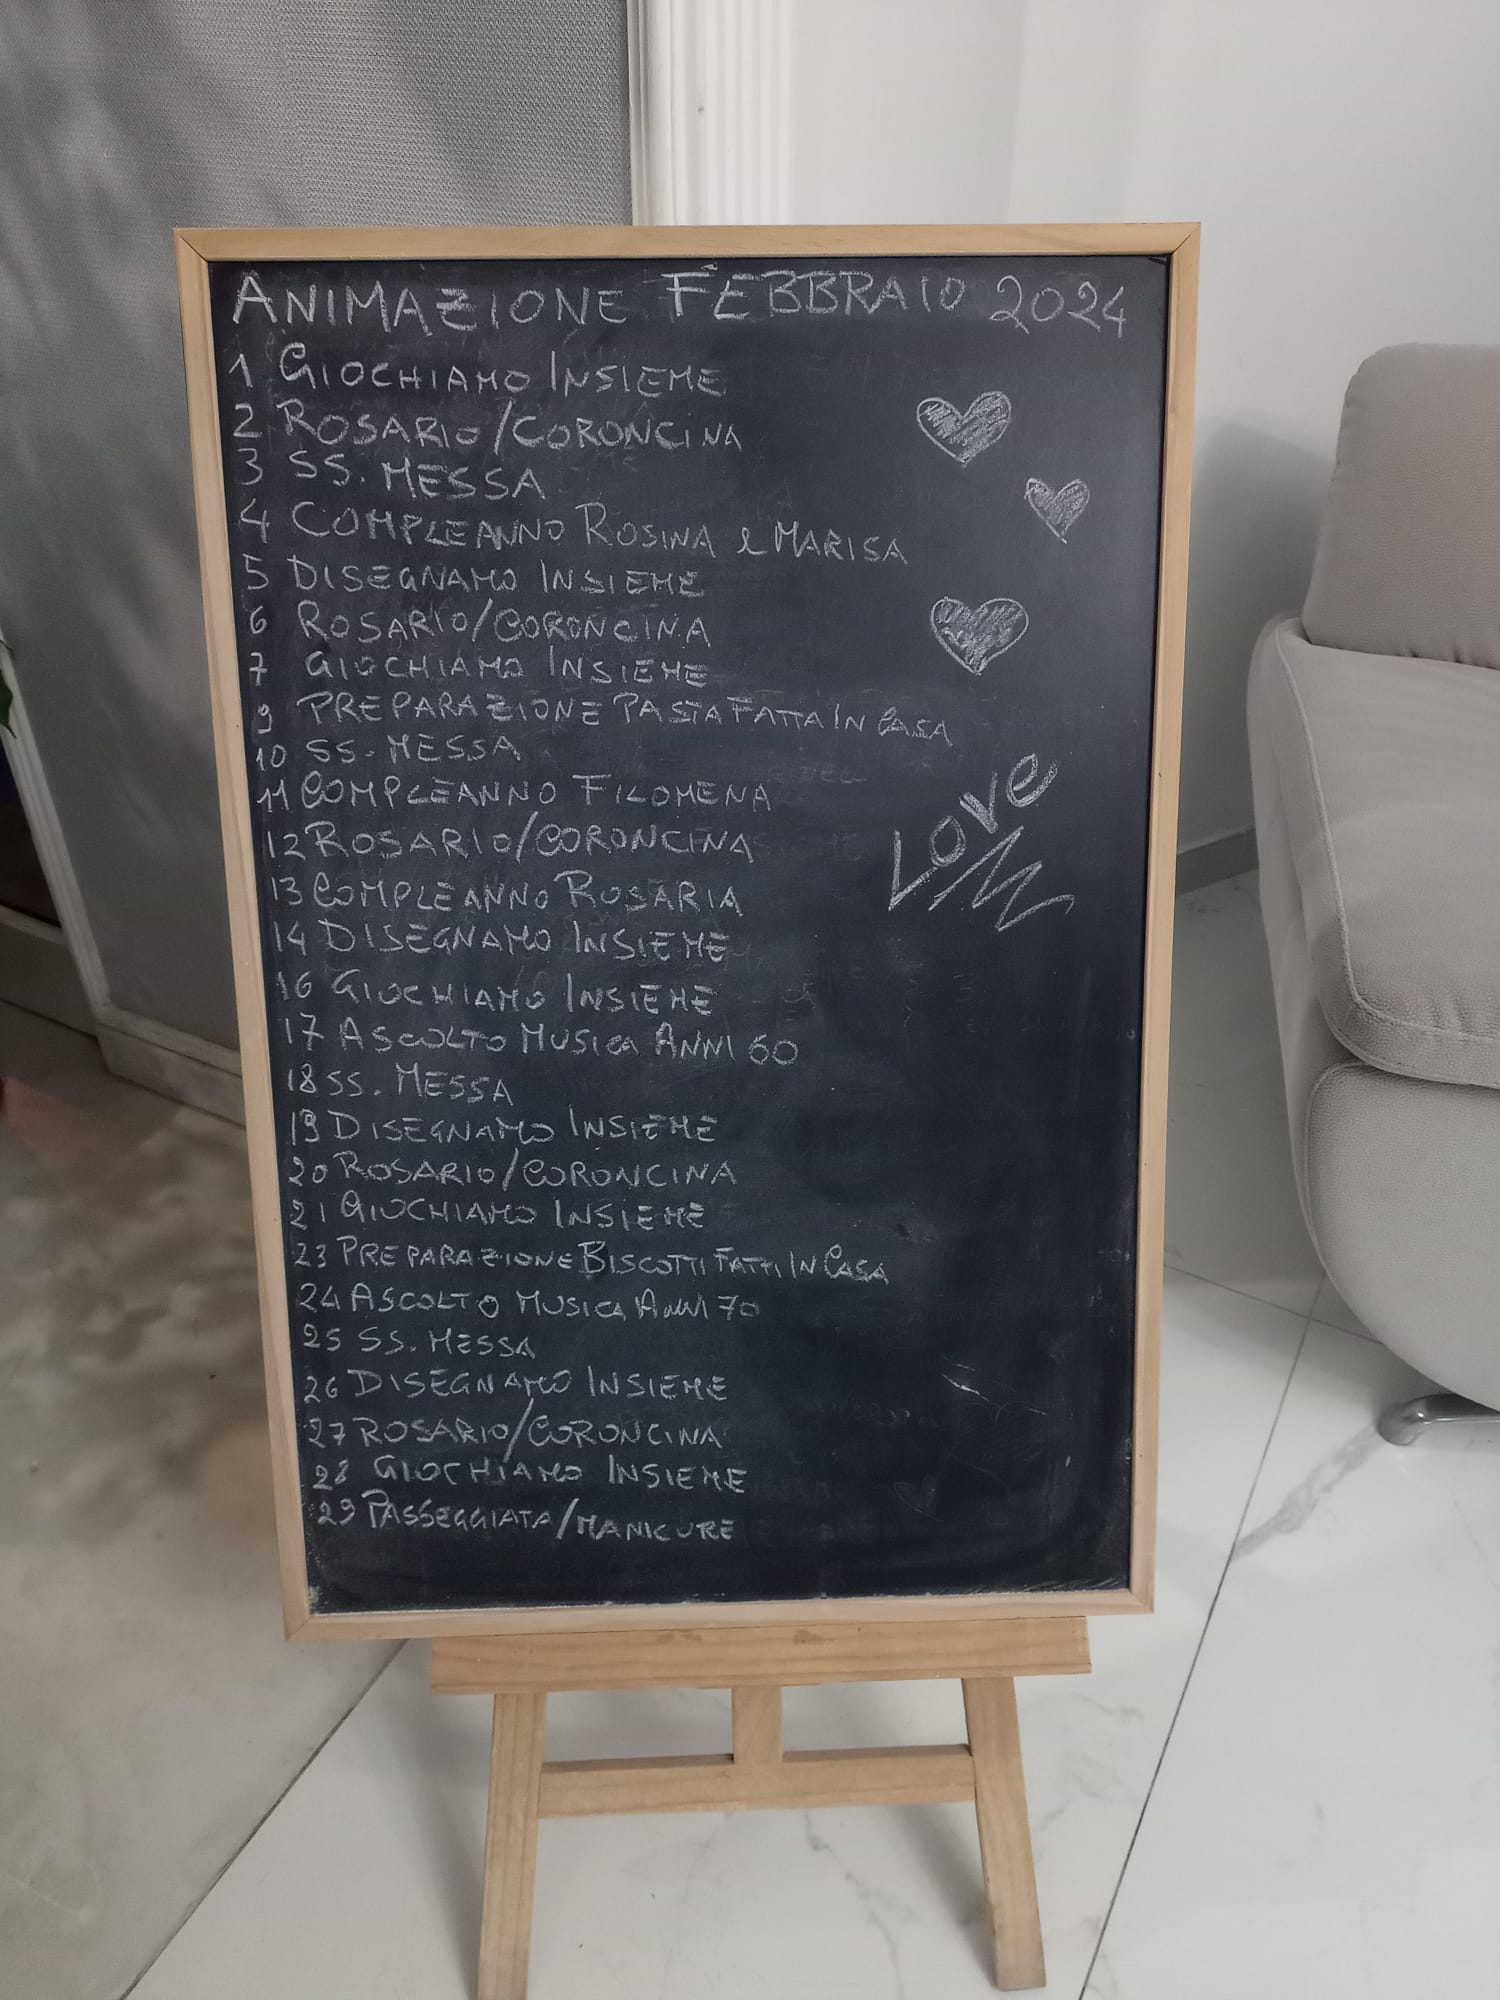 ANIMAZIONE FEBBRAIO 2024
1 GIOCHIAMO INSIEME
2 ROSARIO/CORONCINA
3 SS. MESSA
4 COMPLEANNO ROSINA e MARISA
5 DISEGNAMO INSIEME
6 ROSARIO/CORONCINA
7 GIOCHIAMO INSIEME
9 PREPARAZIONE PASTA FATTA IN CASA
10 SS. MESSA
11 COMPLEANNO FILOMENA
12 ROSARIO/CORONCINA
13 COMPLEANNO ROSARIA
14 DISEGNAMO INSIEME
16 GIOCHIAMO INSIEME
17 ASCOLTO MUSICA ANNI 60
18 SS. MESSA
19 DISEGNAMO INSIEME
20 ROSARIO/CORONCINA
21 GIOCHIAMO INSIEME
23 PREPARAZIONE BISCOTTI FATTI IN CASA
24 ASCOLTO MUSICA ANNI 70
25 SS. MESSA
26 DISEGNAMO INSIEME
27 ROSARIO/CORONCINA
28 GIOCHIAMO INSIEME
29 PASSEGGIATA/MANICURE
Love